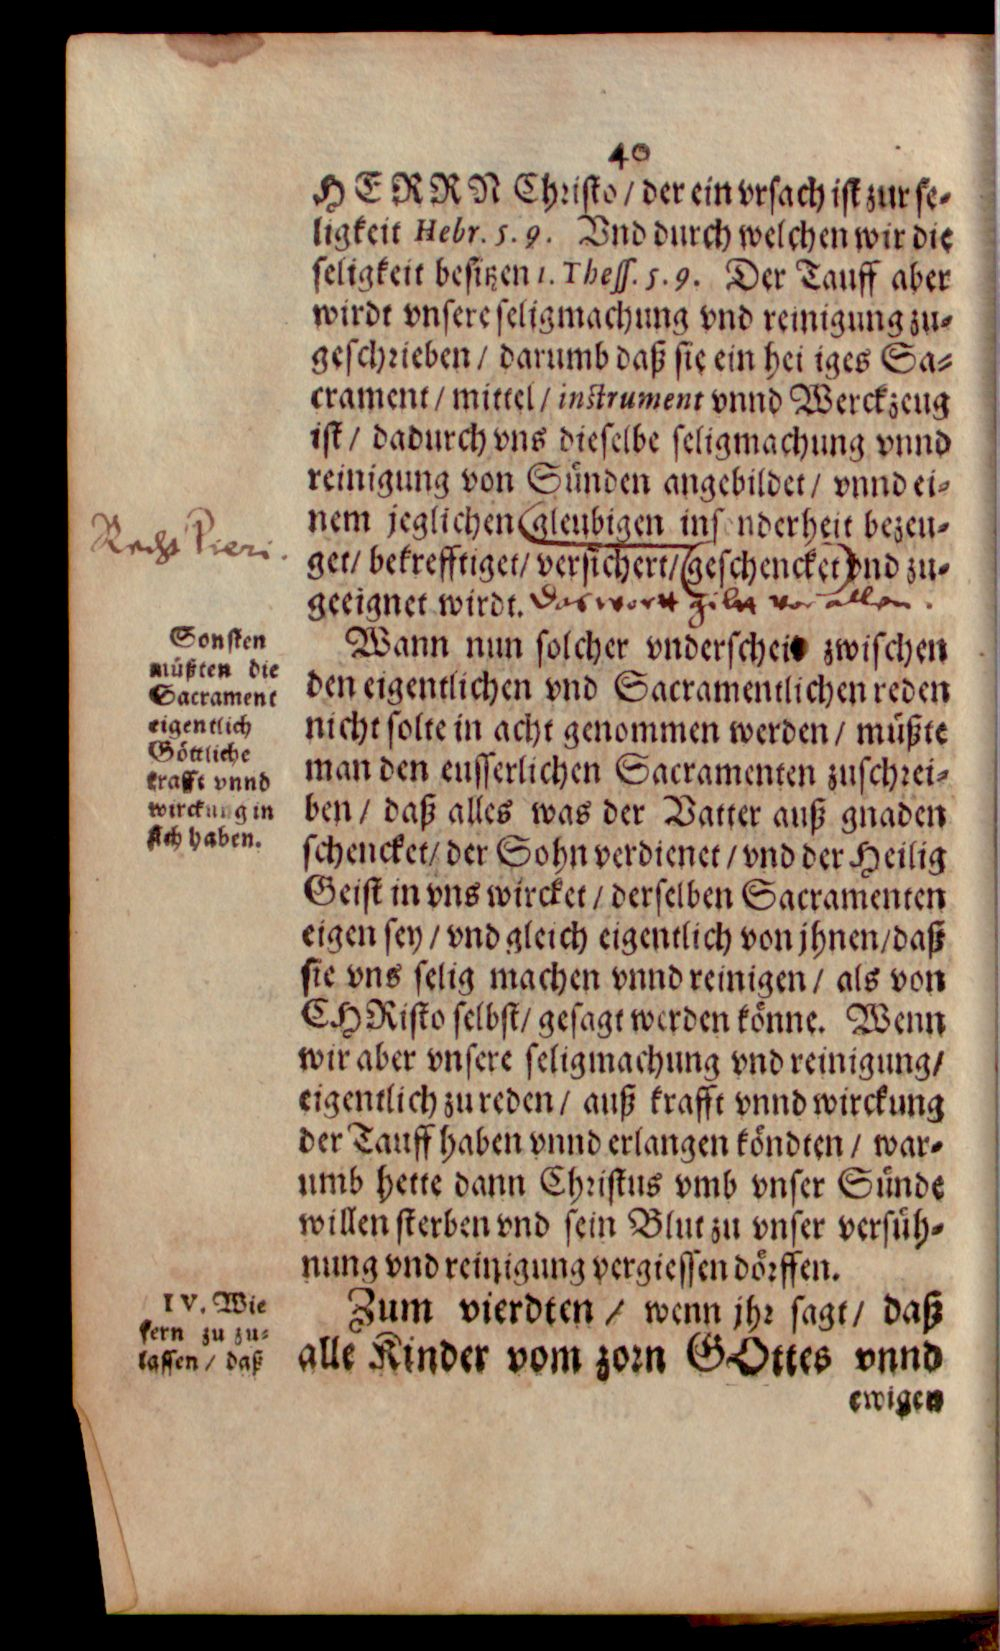 40
HERRN Christo / der ein vrsach ist zur se-
ligkeit Hebr. 5. 9. Vnd durch welchen wir die
seligkeit besitzen 1. Thess. 5. 9. Der Tauff aber
wirdt vnsere seligmachung vnd reinigung zu-
geschrieben / darumb daß sie ein hei iges Sa-
crament / mittel / instrument vnnd Werckzeug
ist / dadurch vns dieselbe seligmachung vnnd
reinigung von Sünden angebildet / vnnd ei-
nem jeglichen gleubigen ins nderheit bezeu-
get / bekrefftiget / versichert / geschencket vnd zu-
geeignet wirdt. Das wortt giltt vor allen.
Sonsten
müßten die
Sacrament
eigentlich
Göttliche
krafft vnnd
wirckung in
sich haben.
Wann nun solcher vnderscheid zwischen
den eigentlichen vnd Sacramentlichen reden
nicht solte in acht genommen werden / müßte
man den eusserlichen Sacramenten zuschrei-
ben / daß alles was der Vatter auß gnaden
schencket / der Sohn verdienet / vnd der Heilig
Geist in vns wircket / derselben Sacramenten
eigen sey / vnd gleich eigentlich von jhnen / daß
sie vns selig machen vnnd reinigen / als von
CHRisto selbst / gesagt werden könne. Wenn
wir aber vnsere seligmachung vnd reinigung /
eigentlich zu reden / auß krafft vnnd wirckung
der Tauff haben vnnd erlangen köndten / war-
umb hette dann Christus vmb vnser Sünde
willen sterben vnd sein Blut zu vnser versüh-
nung vnd reinigung vergiessen dörffen.
IV. Wie
fern zu zu-
lassen / daß
Zum vierdten / wenn jhr sagt / daß
alle Kinder vom zorn GOttes vnnd
ewigen